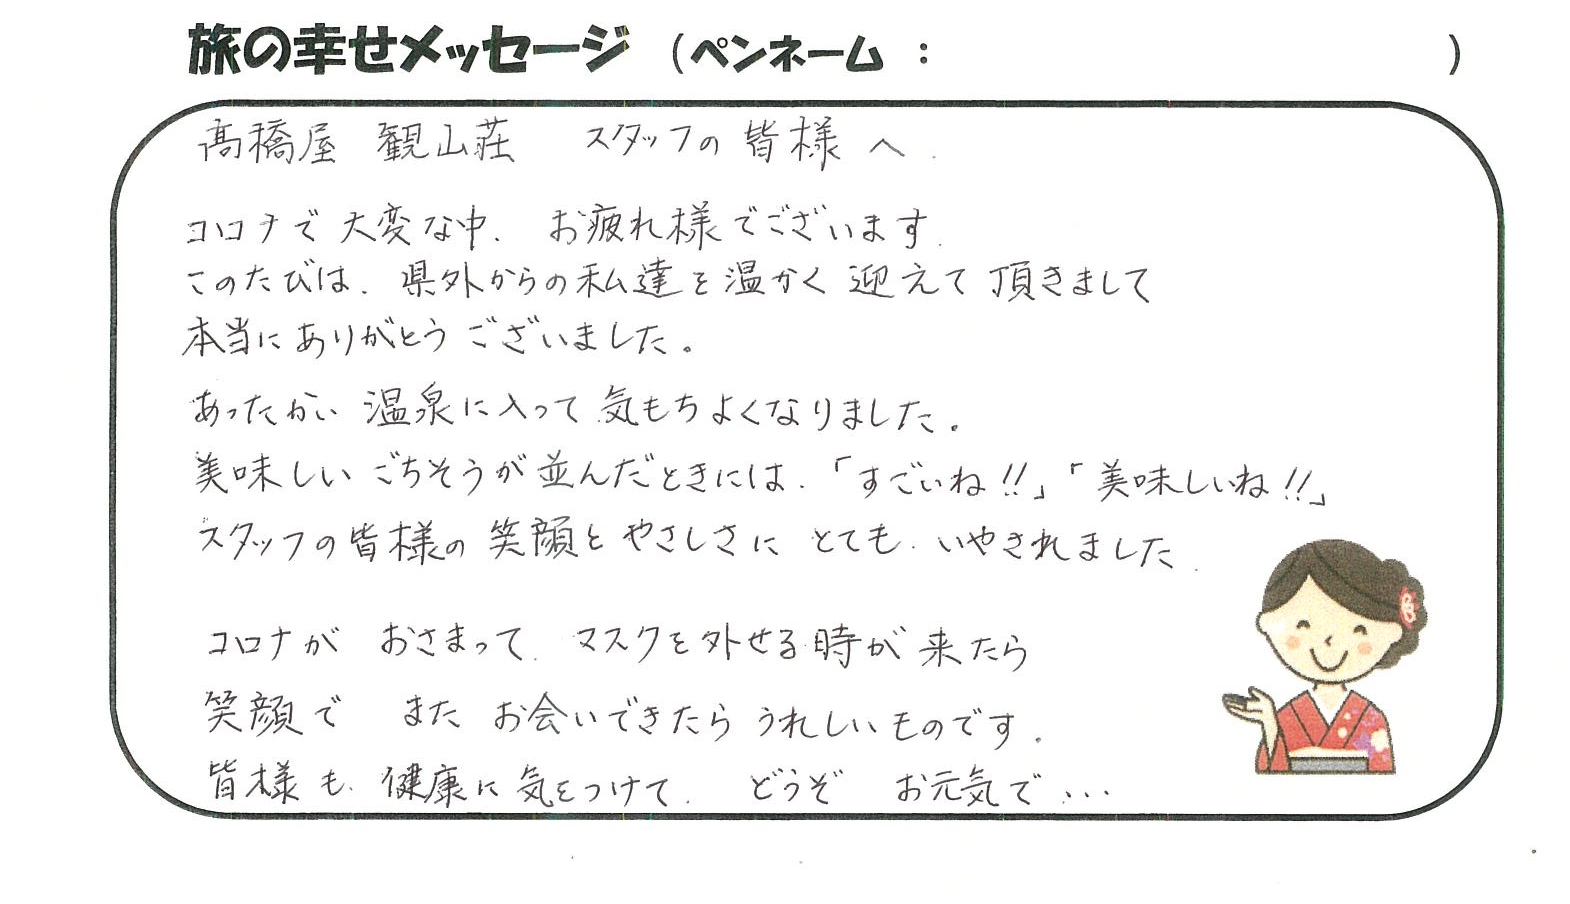 旅の幸せメッセージ （ペンネーム ： ）
髙橋屋 観山荘 スタッフの皆様へ.
コロナで大変な中、お疲れ様でございます.
このたびは、県外からの私達を温かく迎えて頂きまして
本当にありがとうございました。
あったかい温泉に入って気もちよくなりました。
美味しいごちそうが並んだときには、「すごいね!!」「美味しいね!!」
スタッフの皆様の笑顔とやさしさにとても、いやされました.
コロナがおさまって、マスクを外せる時が来たら
笑顔で またお会いできたらうれしいものです。
皆様も、健康に気をつけて、どうぞ お元気で...